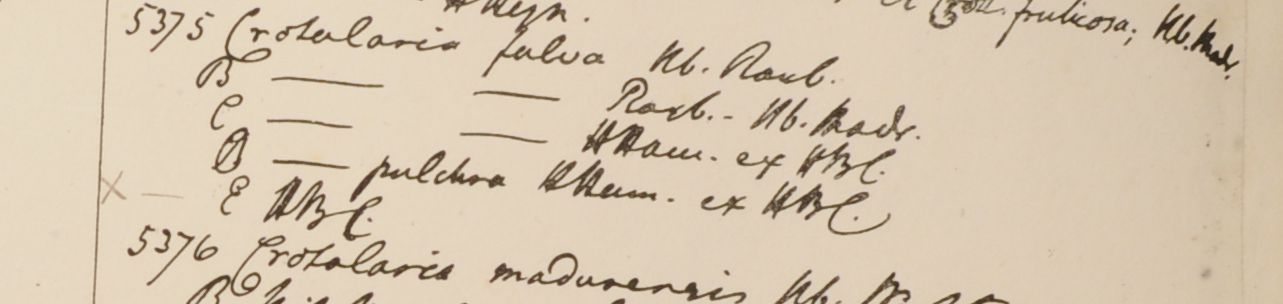 HHeyn. fruticosa; Hb. Madr.
5375 Crotalaria fulva Hb. Roxb.
B — — Roxb. - Hb. Madr.
C — — HHam. ex HBC.
D — pulchra HHam. ex HBC.
× — E HBC.
5376 Crotalaria madurensis Hb.
B